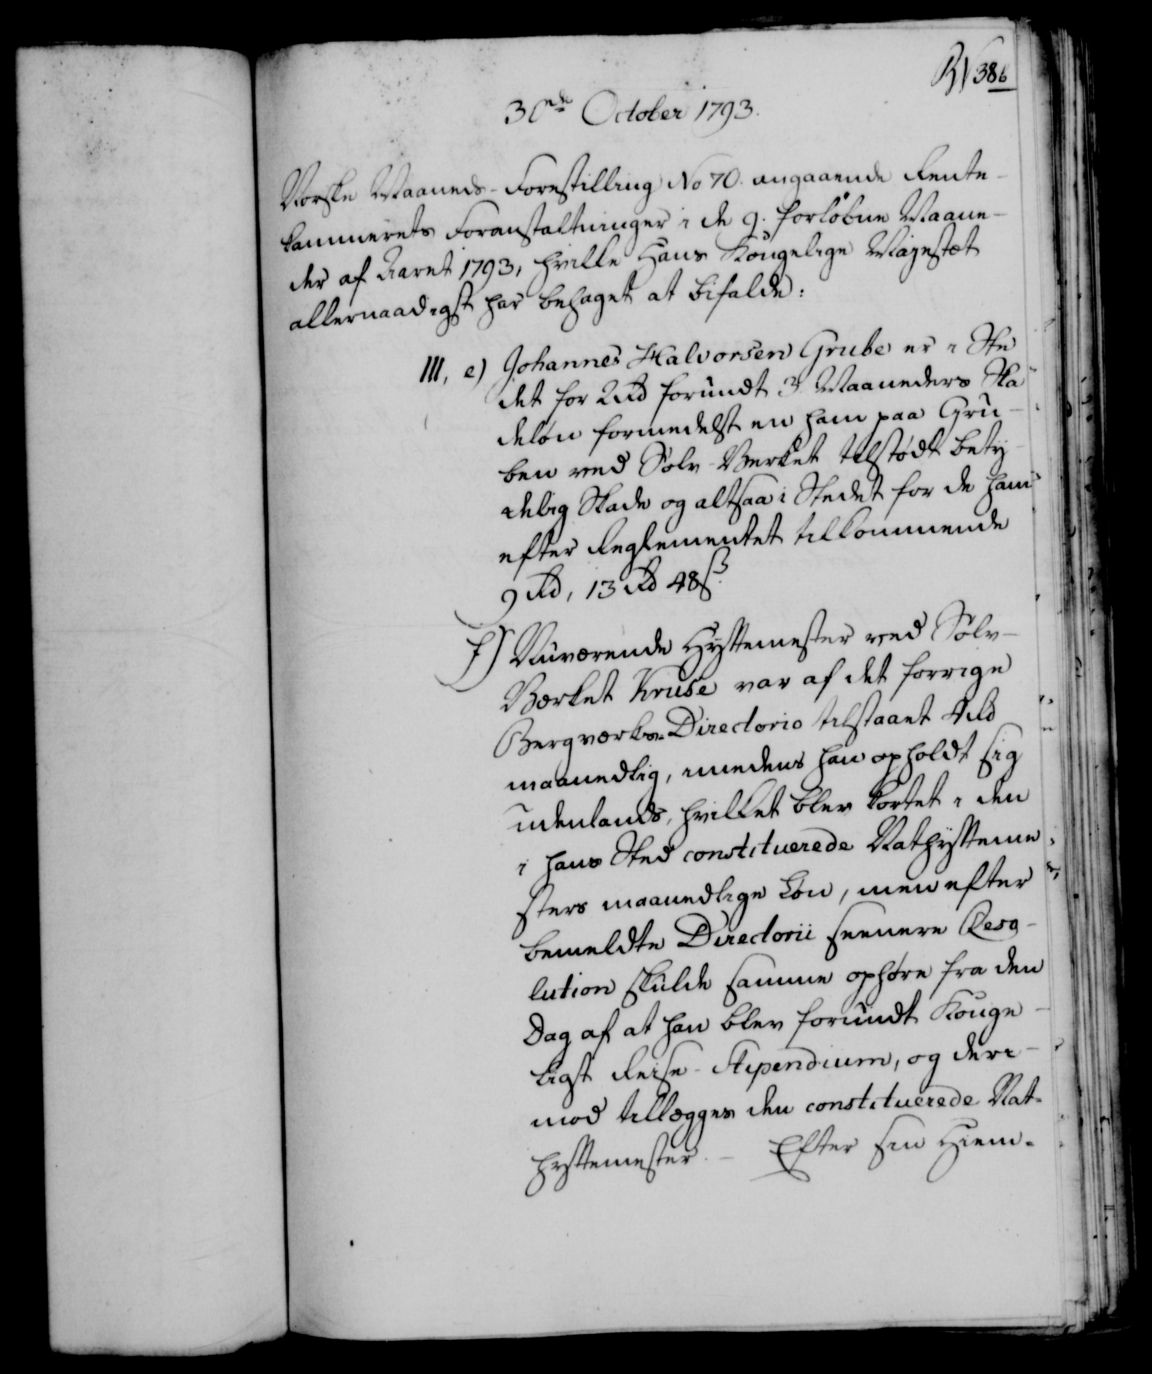 386
30te October 1793.
Norske Maaneds-Forestilling No 70. angaaende Rente-
kammerets Foranstaltninger i de 9. forløbne Maane-
der af Aaret 1793, hvilke Hans Kongelige Majestæt
allernaadigst har behaget at bifalde:
III, e) Johannes Halvorsen Grube er i Ste
det for 2 Rd forundt 3 Maaneders Ska
deløn formedelst en ham paa Gru-
ben ved Sølv-Verket tilstødt bety-
delig Skade og altsaa i Stedet for de ham
efter Reglementet tilkommende
9 Rd, 13 Rd 48 ß.
f) Nuværende Hyttemester ved Sølv-
Værket Kruse var af det forrige
Bergværks-Directorio tilstaaet 4 Rd
maanedlig, imedens han opholdt sig
udenlands, hvilket blev kortet i den
i hans Sted constituerede Nathytteme-
sters maanedlige Løn, men efter
bemeldte Directorii seenere Reso-
lution skulde samme ophøre fra den
Dag af at han blev forundt Konge-
ligt Reise-Stipendium, og deri-
mod tillægges den constituerede Nat-
hyttemester. – Efter sin Hiem-